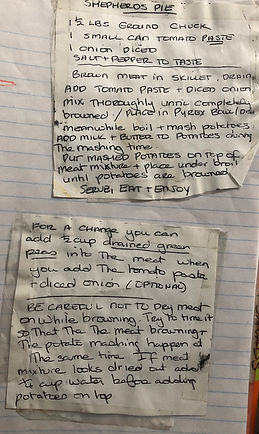 SHEPHERDS PIE
1½ LBS GROUND CHUCK
1 SMALL CAN TOMATO PASTE
1 ONION DICED
SALT + PEPPER TO TASTE
BROWN MEAT IN SKILLET, DRAIN
ADD TOMATO PASTE + DICED ONION
MIX THOROUGHLY UNTIL COMPLETELY
browned / PLACE IN PYREX BOWL/DISH
meanwhile boil + mash potatoes.
ADD MILK + BUTTER TO POTATOES during
The mashing time.
PUT MASHED POTATOES ON TOP OF
meat mixture + place under broil
until potatoes are browned
SERVE, EAT + ENJOY
FOR A CHANGE you can
add ½ cup drained green
peas into The meat when
you add The tomato paste
+ diced onion (OPTIONAL)
BE CAREFUL NOT TO Dry meat
on while browning. Try to time it
so That The The meat browning +
The potato mashing happen at
The same time. If meat
mixture looks dried out add
¼ cup water before adding
potatoes on top